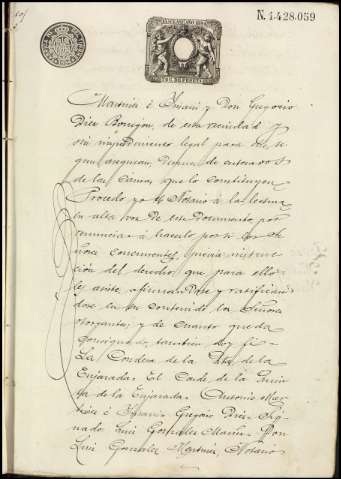 N. 1.428.059
Martinez é Ibrani y Don Gregorio
Diez Borrajon, de esta vecindad y
sin impedimento legal para ser, se-
gun aseguran, después de enterarse
de las Cosas que lo constituyen
Procedo yo el Notario á la lectura
en alta voz de este Documento, por
renunciar á hacerlo por sí los Se-
ñores Concurrentes, previa instruc-
ción del derecho que para ello
le asiste, afirmandose y ratificán-
dose en su contenido la Señora
otorgante, y de cuanto queda
consignado, tambien doy fé =
La Condesa de la de la
Enjarada = El Conde de la
de la Enjarada = Antonio Mar-
tinez é = Gregorio Diez = Sig-
nado Luis Gonzalez = Don
Luis Gonzalez Notario